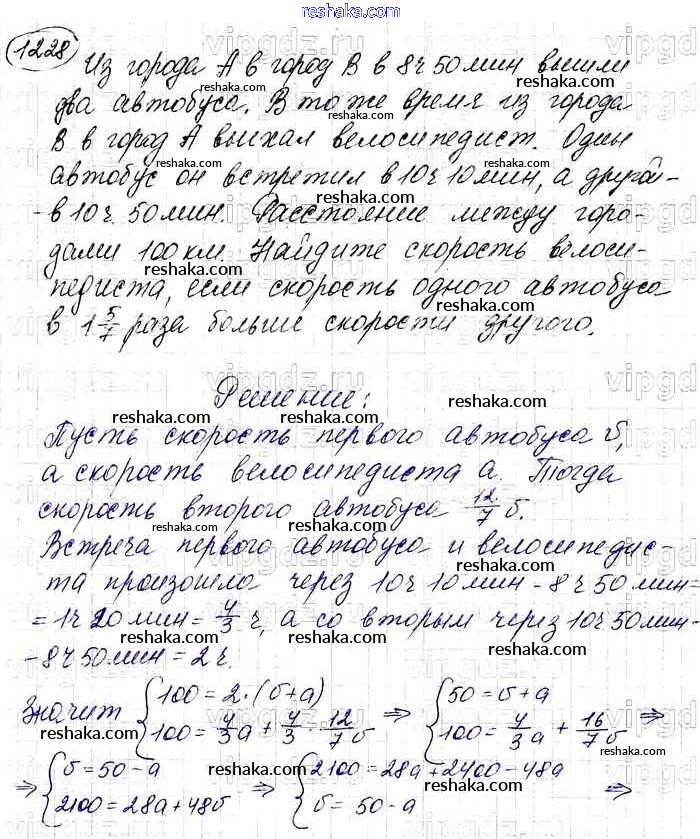 reshaka.com
1228 Из города А в город В в 8ч 50мин вышли
два автобуса. В то же время из города
В в город А выехал велосипедист. Один
автобус он встретил в 10ч 10мин, а другой -
- в 10ч. 50мин. Расстояние между горо-
дами 100км. Найдите скорость велоси-
педиста, если скорость одного автобуса
в 1 5/7 раза больше скорости другого.
Решение:
Пусть скорость первого автобуса б,
а скорость велосипедиста а. Тогда
скорость второго автобуса 12/7 б.
Встреча первого автобуса и велосипедис-
та произошла через 10ч 10мин - 8ч 50мин=
= 1ч 20мин = 4/3 ч, а со вторым через 10ч 50мин-
- 8ч 50мин = 2ч.
Значит { 100 = 2·(б+а) ⇒ { 50 = б+а ⇒
100 = 4/3 а + 4/3 · 12/7 б 100 = 4/3 а + 16/7 б
⇒ { б = 50 - а ⇒ { 2100 = 28а + 2400 - 48а ⇒
2100 = 28а + 48б б = 50 - а